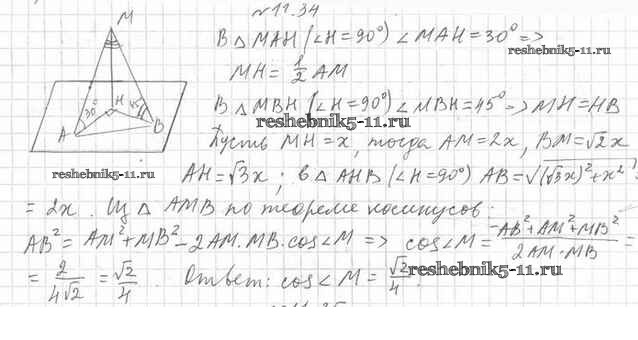 №11.34
M
H
30°
45°
A
B
В △ MAH (∠H=90°) ∠MAH=30° =>
reshebnik5-11.ru
MH= 1/2 AM
В △ MBH (∠H=90°) ∠MBH=45° => MH=HB
reshebnik5-11.ru
Пусть MH=x, тогда AM=2x, BM=√2x
reshebnik5-11.ru
AH=√3x; в △ AHB (∠H=90°) AB=√((√3x)²+x²)=
=2x. Из △ AMB по теореме косинусов:
AB²=AM²+MB²-2AM·MB·cos∠M => cos∠M= (-AB²+AM²+MB²)/(2AM·MB) =
= 2/(4√2) = √2/4 Ответ: cos∠M= √2/4
reshebnik5-11.ru